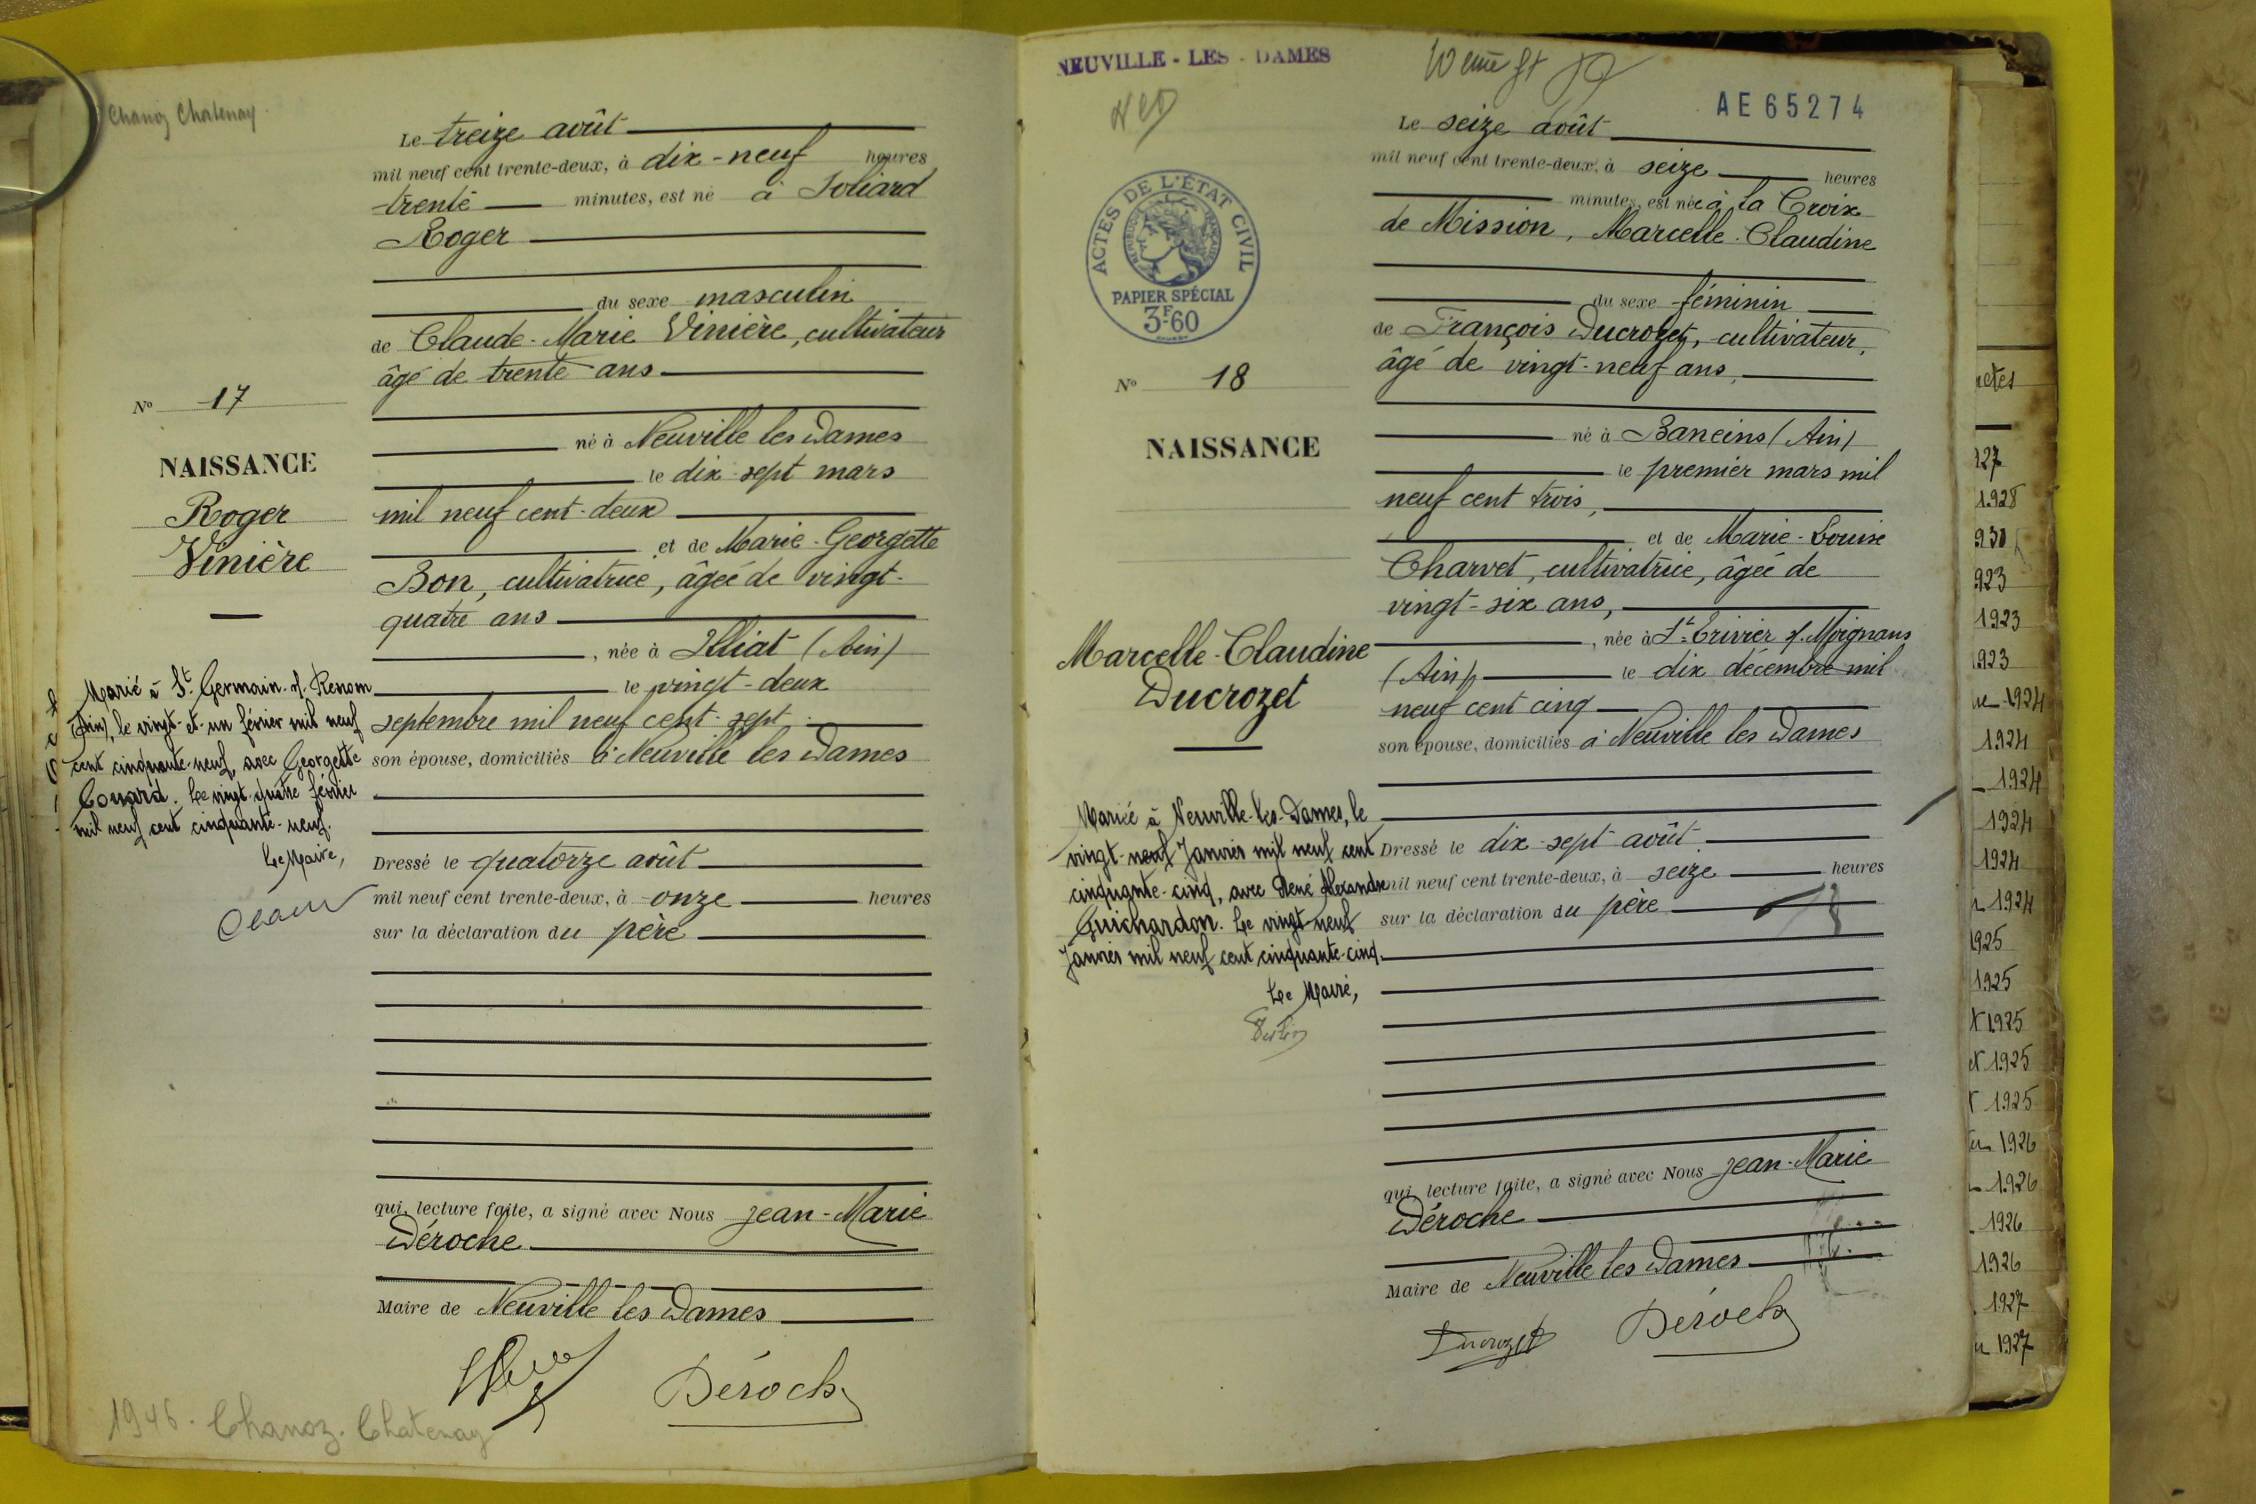 Chanoz Chatenay
Le treize août
mil neuf cent trente-deux, à dix-neuf heures
trente minutes, est né à Joliard
Roger
du sexe masculin
de Claude-Marie Vinière, cultivateur
âgé de trente ans
né à Neuville les Dames
le dix sept mars
mil neuf cent-deux
et de Marie-Georgette
Bon, cultivatrice, âgée de vingt-
quatre ans
, née à Illiat (Ain)
le vingt-deux
septembre mil neuf cent-sept
son épouse, domiciliés à Neuville les Dames
Dressé le quatorze août
mil neuf cent trente-deux, à onze heures
sur la déclaration du père
qui, lecture faite, a signé avec Nous Jean-Marie
Déroche
Maire de Neuville les Dames
Déroche
No 17
NAISSANCE
Roger
Vinière
Marié à St. Germain-s/-Renom
(Ain), le vingt-et-un février mil neuf
cent cinquante-neuf, avec Georgette
Couard. Le vingt-quatre février
mil neuf cent cinquante-neuf.
Le Maire,
1946. Chanoz-Chatenay
NEUVILLE - LES - DAMES
10eme
AE65274
ACTES DE L'ÉTAT CIVIL
RÉPUBLIQUE FRANÇAISE
PAPIER SPÉCIAL
3F60
No 18
NAISSANCE
Marcelle-Claudine
Ducrozet
Mariée à Neuville-les-Dames, le
vingt-neuf Janvier mil neuf cent
cinquante-cinq, avec René Alexandre
Guichardon. Le vingt-neuf
Janvier mil neuf cent cinquante-cinq.
Le Maire,
Le seize août
mil neuf cent trente-deux, à seize heures
minutes, est née à la Croix
de Mission, Marcelle-Claudine
du sexe féminin
de François Ducrozet, cultivateur,
âgé de vingt-neuf ans,
né à Baneins (Ain)
le premier mars mil
neuf cent trois,
et de Marie-Louise
Charvet, cultivatrice, âgée de
vingt-six ans,
, née à St-Trivier s/-Moignans
(Ain), le dix décembre mil
neuf cent cinq
son épouse, domiciliés à Neuville les Dames
Dressé le dix-sept août
mil neuf cent trente-deux, à seize heures
sur la déclaration du père
qui, lecture faite, a signé avec Nous Jean-Marie
Déroche
Maire de Neuville les Dames
Ducrozet Déroche
1928
1923
1923
1924
1924
1924
1924
1924
1924
1925
1925
1925
1925
1925
1926
1926
1926
1926
1927
1927